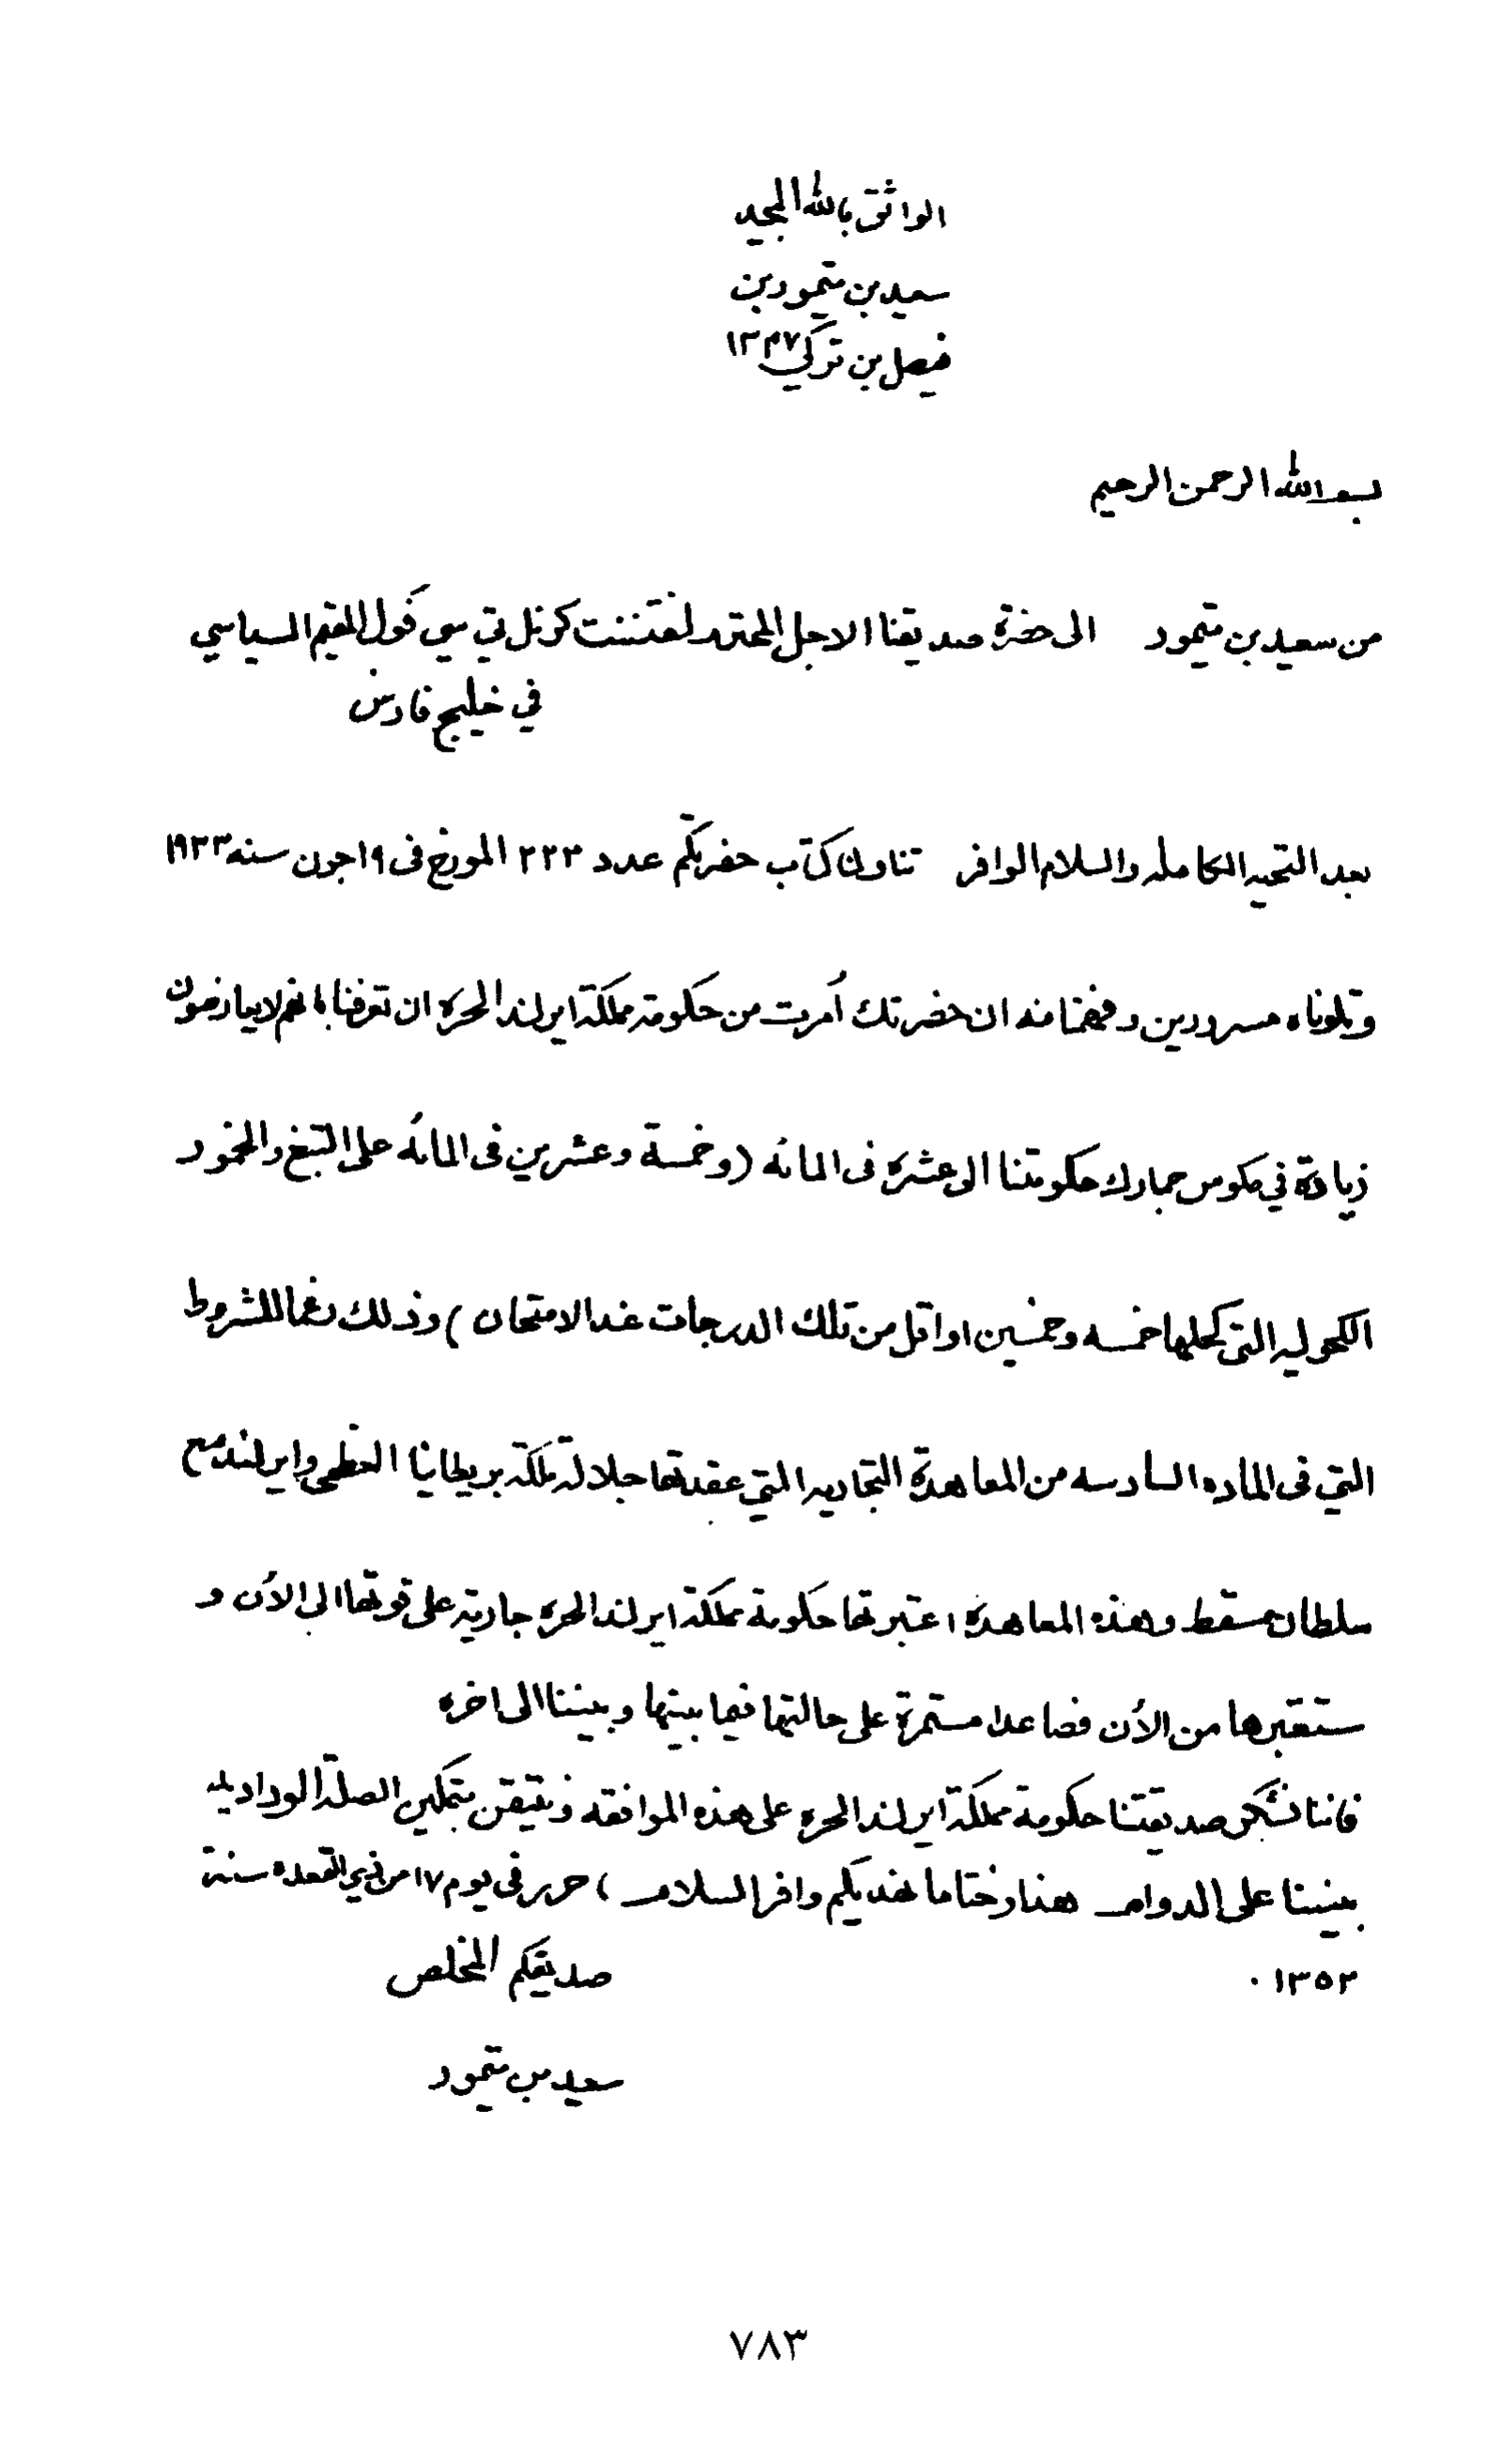 الواثق بالله المجيد
سعيد بن تيمور بن
فيصل بن تركي ١٣٤٧
بسم الله الرحمن الرحيم
من سعيد بن تيمور الى حضرة صديقنا الاجل المحترم لفتننت كرنل تي سي فول المقيم السياسي
في خليج فارس
بعد التحيه الكامله والسلام الوافر تناولنا كتاب حضرتكم عدد ٢٢٣ المورخ فى ١٩ جون سنه ١٩٣٣
وتلوناه مسرورين وفهمنا منه ان حضرتك أمرت من حكومة مملكة ايرلند الحره ان تعرفنا بانهم لا يعارضون
زيادة في مكوس جمارك حكومتنا الى عشره فى المائه (وخمسة وعشرين فى المائه على التبغ والخمور
الكحوليه التى كحلها خمسه وخمسين او اقل من تلك الدرجات عند الامتحان) وذلك رغما للشروط
التي فى الماده السادسه من المعاهدة التجاريه التي عقدتها جلالة ملكة بريطانيا العظمى وايرلند مع
سلطان مسقط وهذه المعاهده اعتبرتها حكومة مملكة ايرلند الحره جارية على قوتها الى الأن و
ستعتبرها من الأن فصاعدا مستمرة على حالتها فيما بينها وبيننا الى اخره
فاننا نشكر صديقتنا حكومة مملكة ايرلند الحره على هذه الموافقه ونتيقن بتمكين الصلة الوداديه
بيننا على الدوام هذا وختاما نهديكم وافر السلام ، حرر فى يوم ١٧ من ذي القعده سنة
١٣٥٢ .
صديقكم المخلص
سعيد بن تيمور
٧٨٣